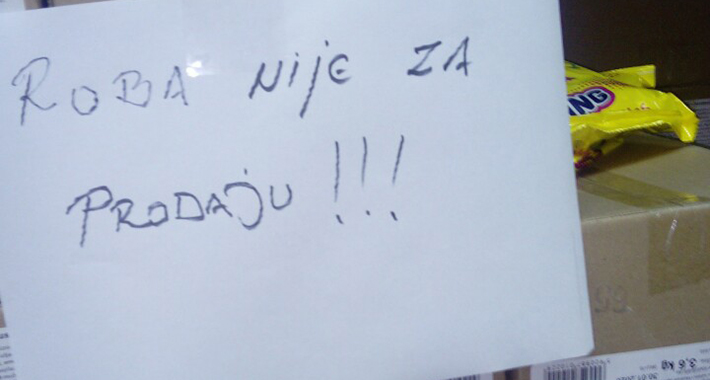 ROBA NIJE ZA
PRODAJU!!!
ING
3,6 kg